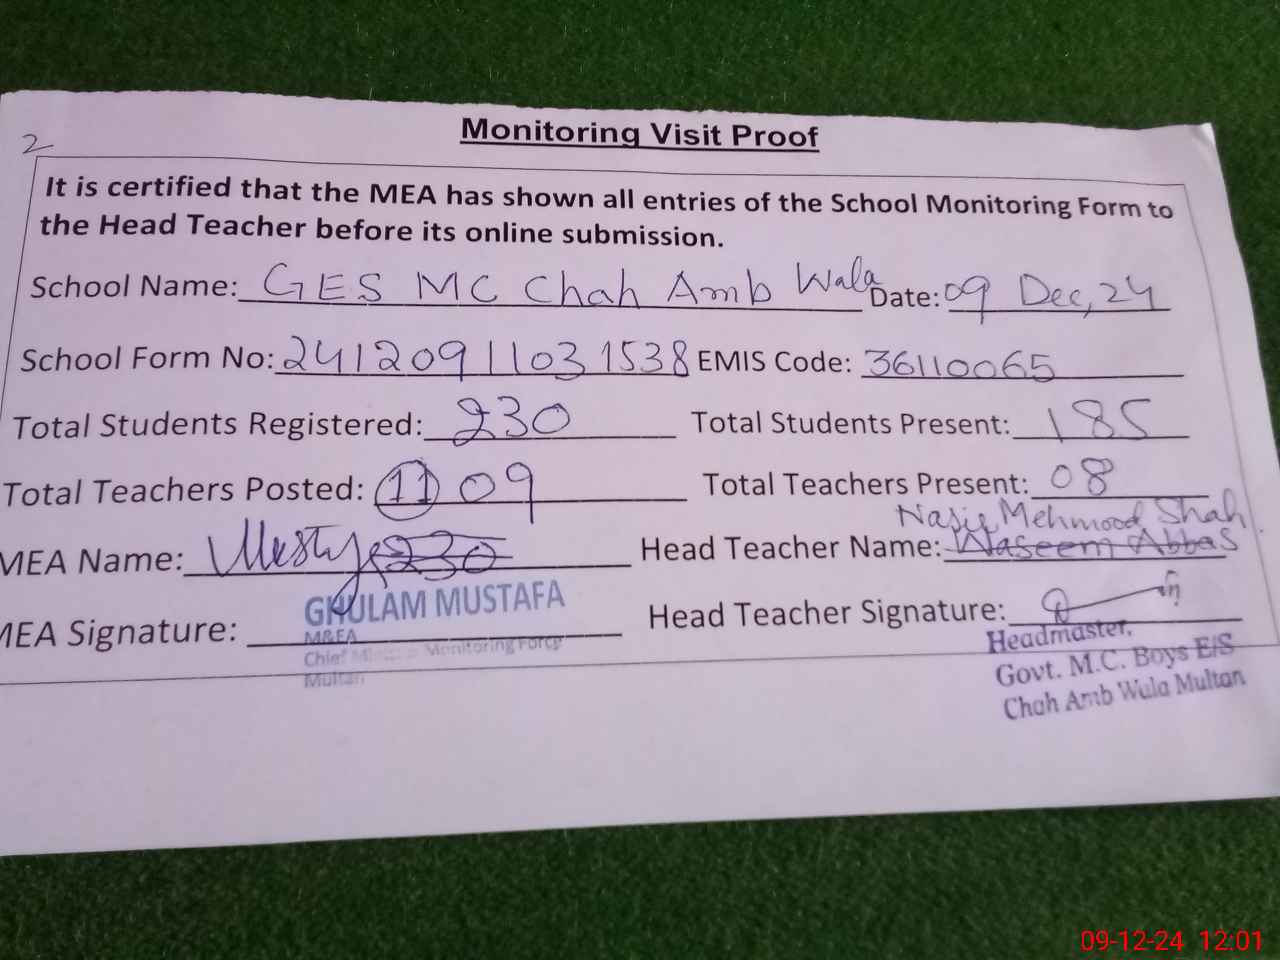 2
Monitoring Visit Proof
It is certified that the MEA has shown all entries of the School Monitoring Form to
the Head Teacher before its online submission.
School Name: GES MC Chah Amb Wala Date: 09 Dec, 24
School Form No: 2412091103 1538 EMIS Code: 36110065
Total Students Registered: 230 Total Students Present: 185
Total Teachers Posted: 11 09 Total Teachers Present: 08
Nasir Mehmood Shah
MEA Name: 230 Head Teacher Name: Waseem Abbas
MEA Signature: Head Teacher Signature:
GHULAM MUSTAFA
M&EA
Chief Monitoring Force
Multan
Headmaster.
Govt. M.C. Boys E/S
Chah Amb Wala Multan
09-12-24 12:01